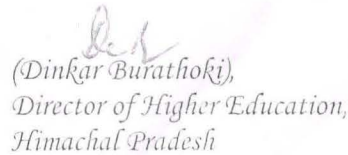 (Dinkar Burathoki),
Director of Higher Education,
Himachal Pradesh